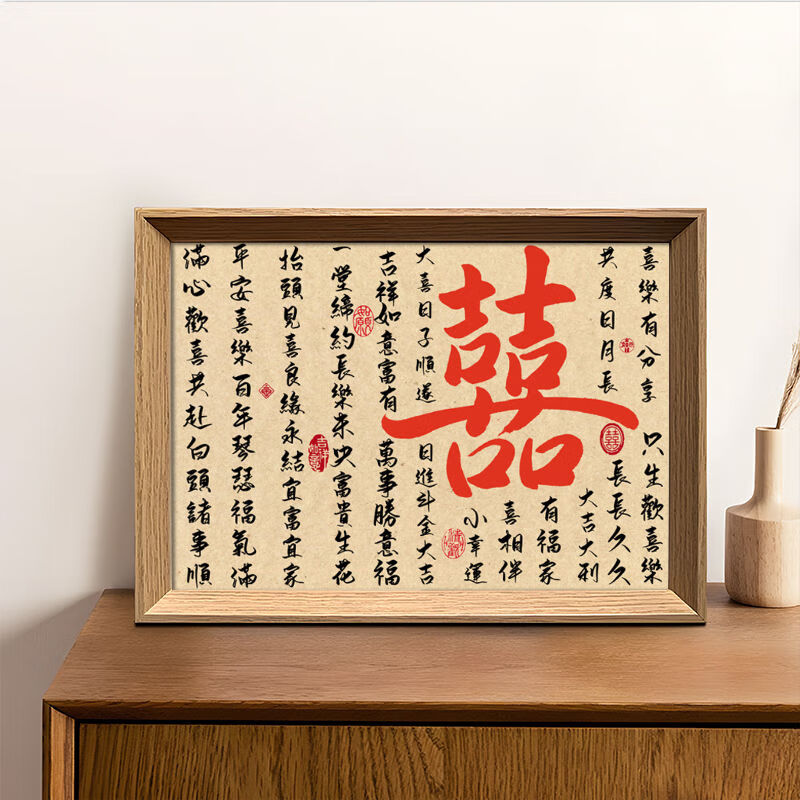 喜樂有分享 只生歡喜樂
共度日月長
囍
長長久久
大吉大利
囍
有福家
喜相伴
小幸運
大喜日子順遂 日進斗金大吉
吉祥如意富有 萬事勝意福
如願
一堂締約長樂未央富貴生花
吉祥如意
抬頭見喜良緣永結宜富宜家
平安喜樂百年琴瑟福氣滿
滿心歡喜共赴白頭諸事順